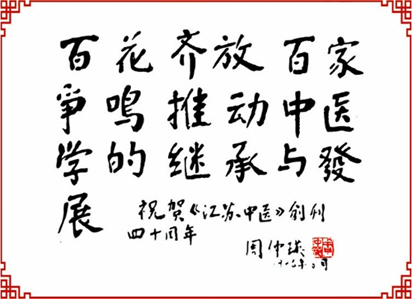 百花齐放百家
争鸣推动中医
学的继承与發
展
祝贺《江苏中医》创刊
四十周年
周仲瑛